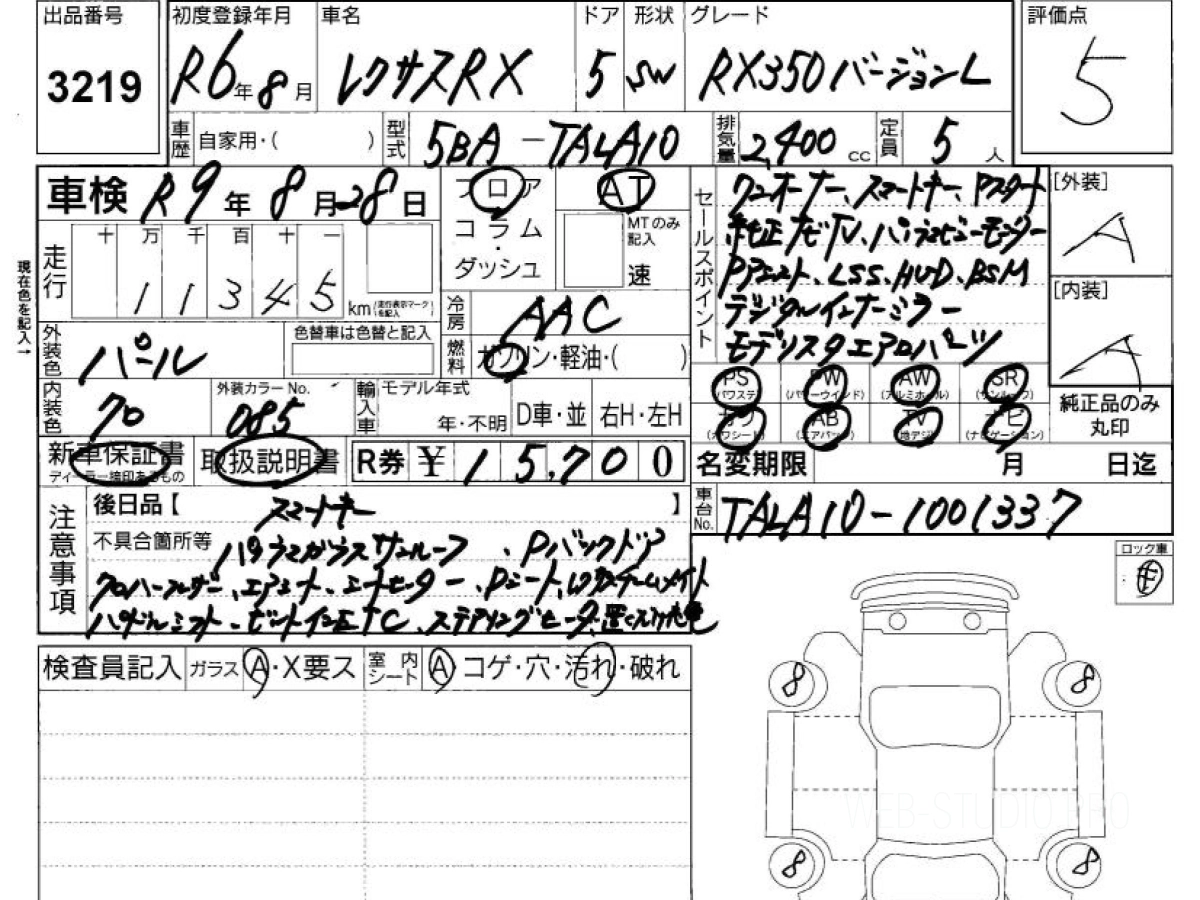 出品番号 初度登録年月 車名 ドア 形状 グレード 評価点
3219 R6年8月 レクサスRX 5 SW RX350バージョンL 5
車歴 自家用・( ) 型式 5BA-TALA10 排気量 2,400cc 定員 5人
車検 R9年8月28日 フロア AT
コラム MTのみ記入
・ダッシュ 速
セールスポイント ワンオーナー、スマートキー、Pスタート
純正ナビTV、パノラマビューモニター
Pアシスト、LSS、HUD、BSM
デジタルインナーミラー
モデリスタエアロパーツ
[外装] A
[内装] A
現在色を記入→
走行 十 万 千 百 十 一
11345 km (走行表示マークを記入)
冷房 AAC
外装色 パール 色替車は色替と記入
燃料 ガソリン・軽油・( )
内装色 70 外装カラーNo. 085 輸入車 モデル年式 年・不明 D車・並 右H・左H
PS (パワステ) PW (パワーウインド) AW (アルミホイール) SR (サンルーフ)
カワ (カワシート) AB (エアバック) TV (地デジ) ナビ (ナビゲーション)
純正品のみ丸印
新車保証書 ディーラー捺印あるもの 取扱説明書 R券 ¥15,700
名変期限 月 日迄
注意事項 後日品【 スマートキー 】
車台No. TALA10-1001337
不具合箇所等 パノラマガラスサンルーフ、Pバックドア
クロハーフレザー、エアシート、シートヒーター、Pシート、レクサスチームメイト
パドルシフト、ビルトインETC、ステアリングヒータ、
ロック車
検査員記入 ガラス A・X要ス 室内シート A コゲ・穴・汚れ・破れ
8 8
WEB-STUDIO PRO
8 8